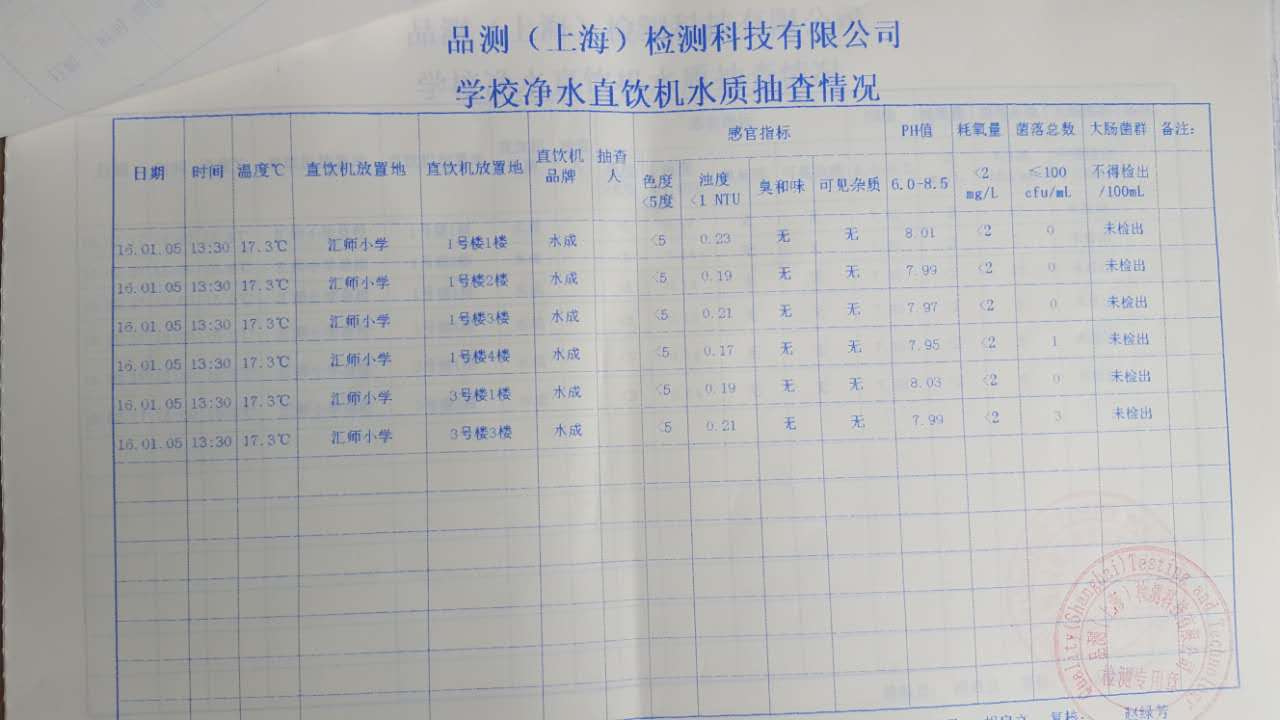 品测（上海）检测科技有限公司
学校净水直饮机水质抽查情况
日期 时间 温度℃ 直饮机放置地 直饮机放置地 直饮机品牌 抽查人 感官指标 PH值 耗氧量 菌落总数 大肠菌群 备注：
色度<5度 浊度<1 NTU 臭和味 可见杂质 6.0-8.5 <2 mg/L ≤100 cfu/mL 不得检出/100mL
16.01.05 13:30 17.3℃ 汇师小学 1号楼1楼 水成 <5 0.23 无 无 8.01 <2 0 未检出
16.01.05 13:30 17.3℃ 汇师小学 1号楼2楼 水成 <5 0.19 无 无 7.99 <2 0 未检出
16.01.05 13:30 17.3℃ 汇师小学 1号楼3楼 水成 <5 0.21 无 无 7.97 <2 0 未检出
16.01.05 13:30 17.3℃ 汇师小学 1号楼4楼 水成 <5 0.17 无 无 7.95 <2 1 未检出
16.01.05 13:30 17.3℃ 汇师小学 3号楼1楼 水成 <5 0.19 无 无 8.03 <2 0 未检出
16.01.05 13:30 17.3℃ 汇师小学 3号楼3楼 水成 <5 0.21 无 无 7.99 <2 3 未检出
Quality(Shanghai)Testing and Technology
品测（上海）检测科技有限公司
检测专用章
复核： 赵绿芳